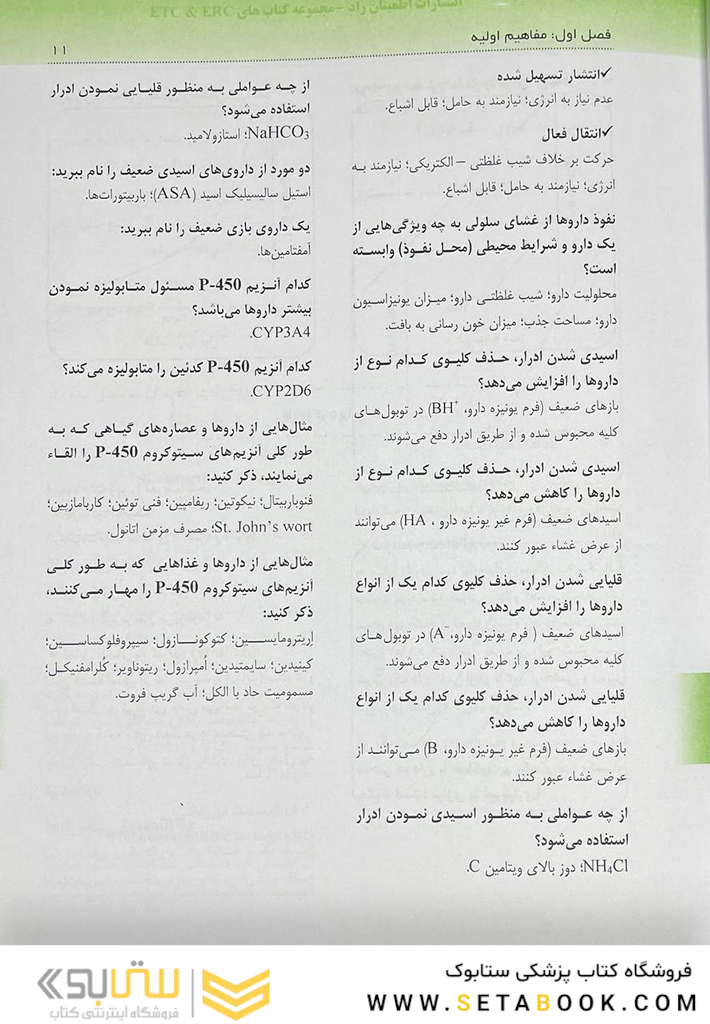 انتشارات اطمینان راد - مجموعه کتاب های ETC & ERC
فصل اول: مفاهیم اولیه
۱۱
✓انتشار تسهیل شده
عدم نیاز به انرژی؛ نیازمند به حامل؛ قابل اشباع.
✓انتقال فعال
حرکت بر خلاف شیب غلظتی – الکتریکی؛ نیازمند به
انرژی؛ نیازمند به حامل؛ قابل اشباع.
نفوذ داروها از غشای سلولی به چه ویژگی‌هایی از
یک دارو و شرایط محیطی (محل نفوذ) وابسته
است؟
محلولیت دارو؛ شیب غلظتی دارو؛ میزان یونیزاسیون
دارو؛ مساحت جذب؛ میزان خون رسانی به بافت.
اسیدی شدن ادرار، حذف کلیوی کدام نوع از
داروها را افزایش می‌دهد؟
بازهای ضعیف (فرم یونیزه دارو، BH⁺) در توبول‌های
کلیه محبوس شده و از طریق ادرار دفع می‌شوند.
اسیدی شدن ادرار، حذف کلیوی کدام نوع از
داروها را کاهش می‌دهد؟
اسیدهای ضعیف (فرم غیر یونیزه دارو ، HA) می‌توانند
از عرض غشاء عبور کنند.
قلیایی شدن ادرار، حذف کلیوی کدام یک از انواع
داروها را افزایش می‌دهد؟
اسیدهای ضعیف ( فرم یونیزه دارو، A⁻) در توبول‌های
کلیه محبوس شده و از طریق ادرار دفع می‌شوند.
قلیایی شدن ادرار، حذف کلیوی کدام یک از انواع
داروها را کاهش می‌دهد؟
بازهای ضعیف (فرم غیر یونیزه دارو، B) می‌توانند از
عرض غشاء عبور کنند.
از چه عواملی به منظور اسیدی نمودن ادرار
استفاده می‌شود؟
NH₄Cl؛ دوز بالای ویتامین C.
از چه عواملی به منظور قلیایی نمودن ادرار
استفاده می‌شود؟
NaHCO₃؛ استازولامید.
دو مورد از داروی‌های اسیدی ضعیف را نام ببرید:
استیل سالیسیلیک اسید (ASA)؛ باربیتورات‌ها.
یک داروی بازی ضعیف را نام ببرید:
آمفتامین‌ها.
کدام آنزیم P-450 مسئول متابولیزه نمودن
بیشتر داروها می‌باشد؟
CYP3A4.
کدام آنزیم P-450 کدئین را متابولیزه می‌کند؟
CYP2D6.
مثال‌هایی از داروها و عصاره‌های گیاهی که به
طور کلی آنزیم‌های سیتوکروم P-450 را القاء
می‌نمایند، ذکر کنید:
فنوباربیتال؛ نیکوتین؛ ریفامپین؛ فنی توئین؛ کاربامازپین؛
St. John’s wort؛ مصرف مزمن اتانول.
مثال‌هایی از داروها و غذاهایی که به طور کلی
آنزیم‌های سیتوکروم P-450 را مهار می‌کنند،
ذکر کنید:
اِریترومایسین؛ کتوکونازول؛ سیپروفلوکساسین؛
کینیدین؛ سایمتیدین؛ اُمپرازول؛ ریتوناویر؛ کُلرامفنیکل؛
مسمومیت حاد با الکل؛ آب گریپ فروت.
فروشگاه کتاب پزشکی ستابوک
WWW.SETABOOK.COM
ستابوک
فروشگاه اینترنتی کتاب